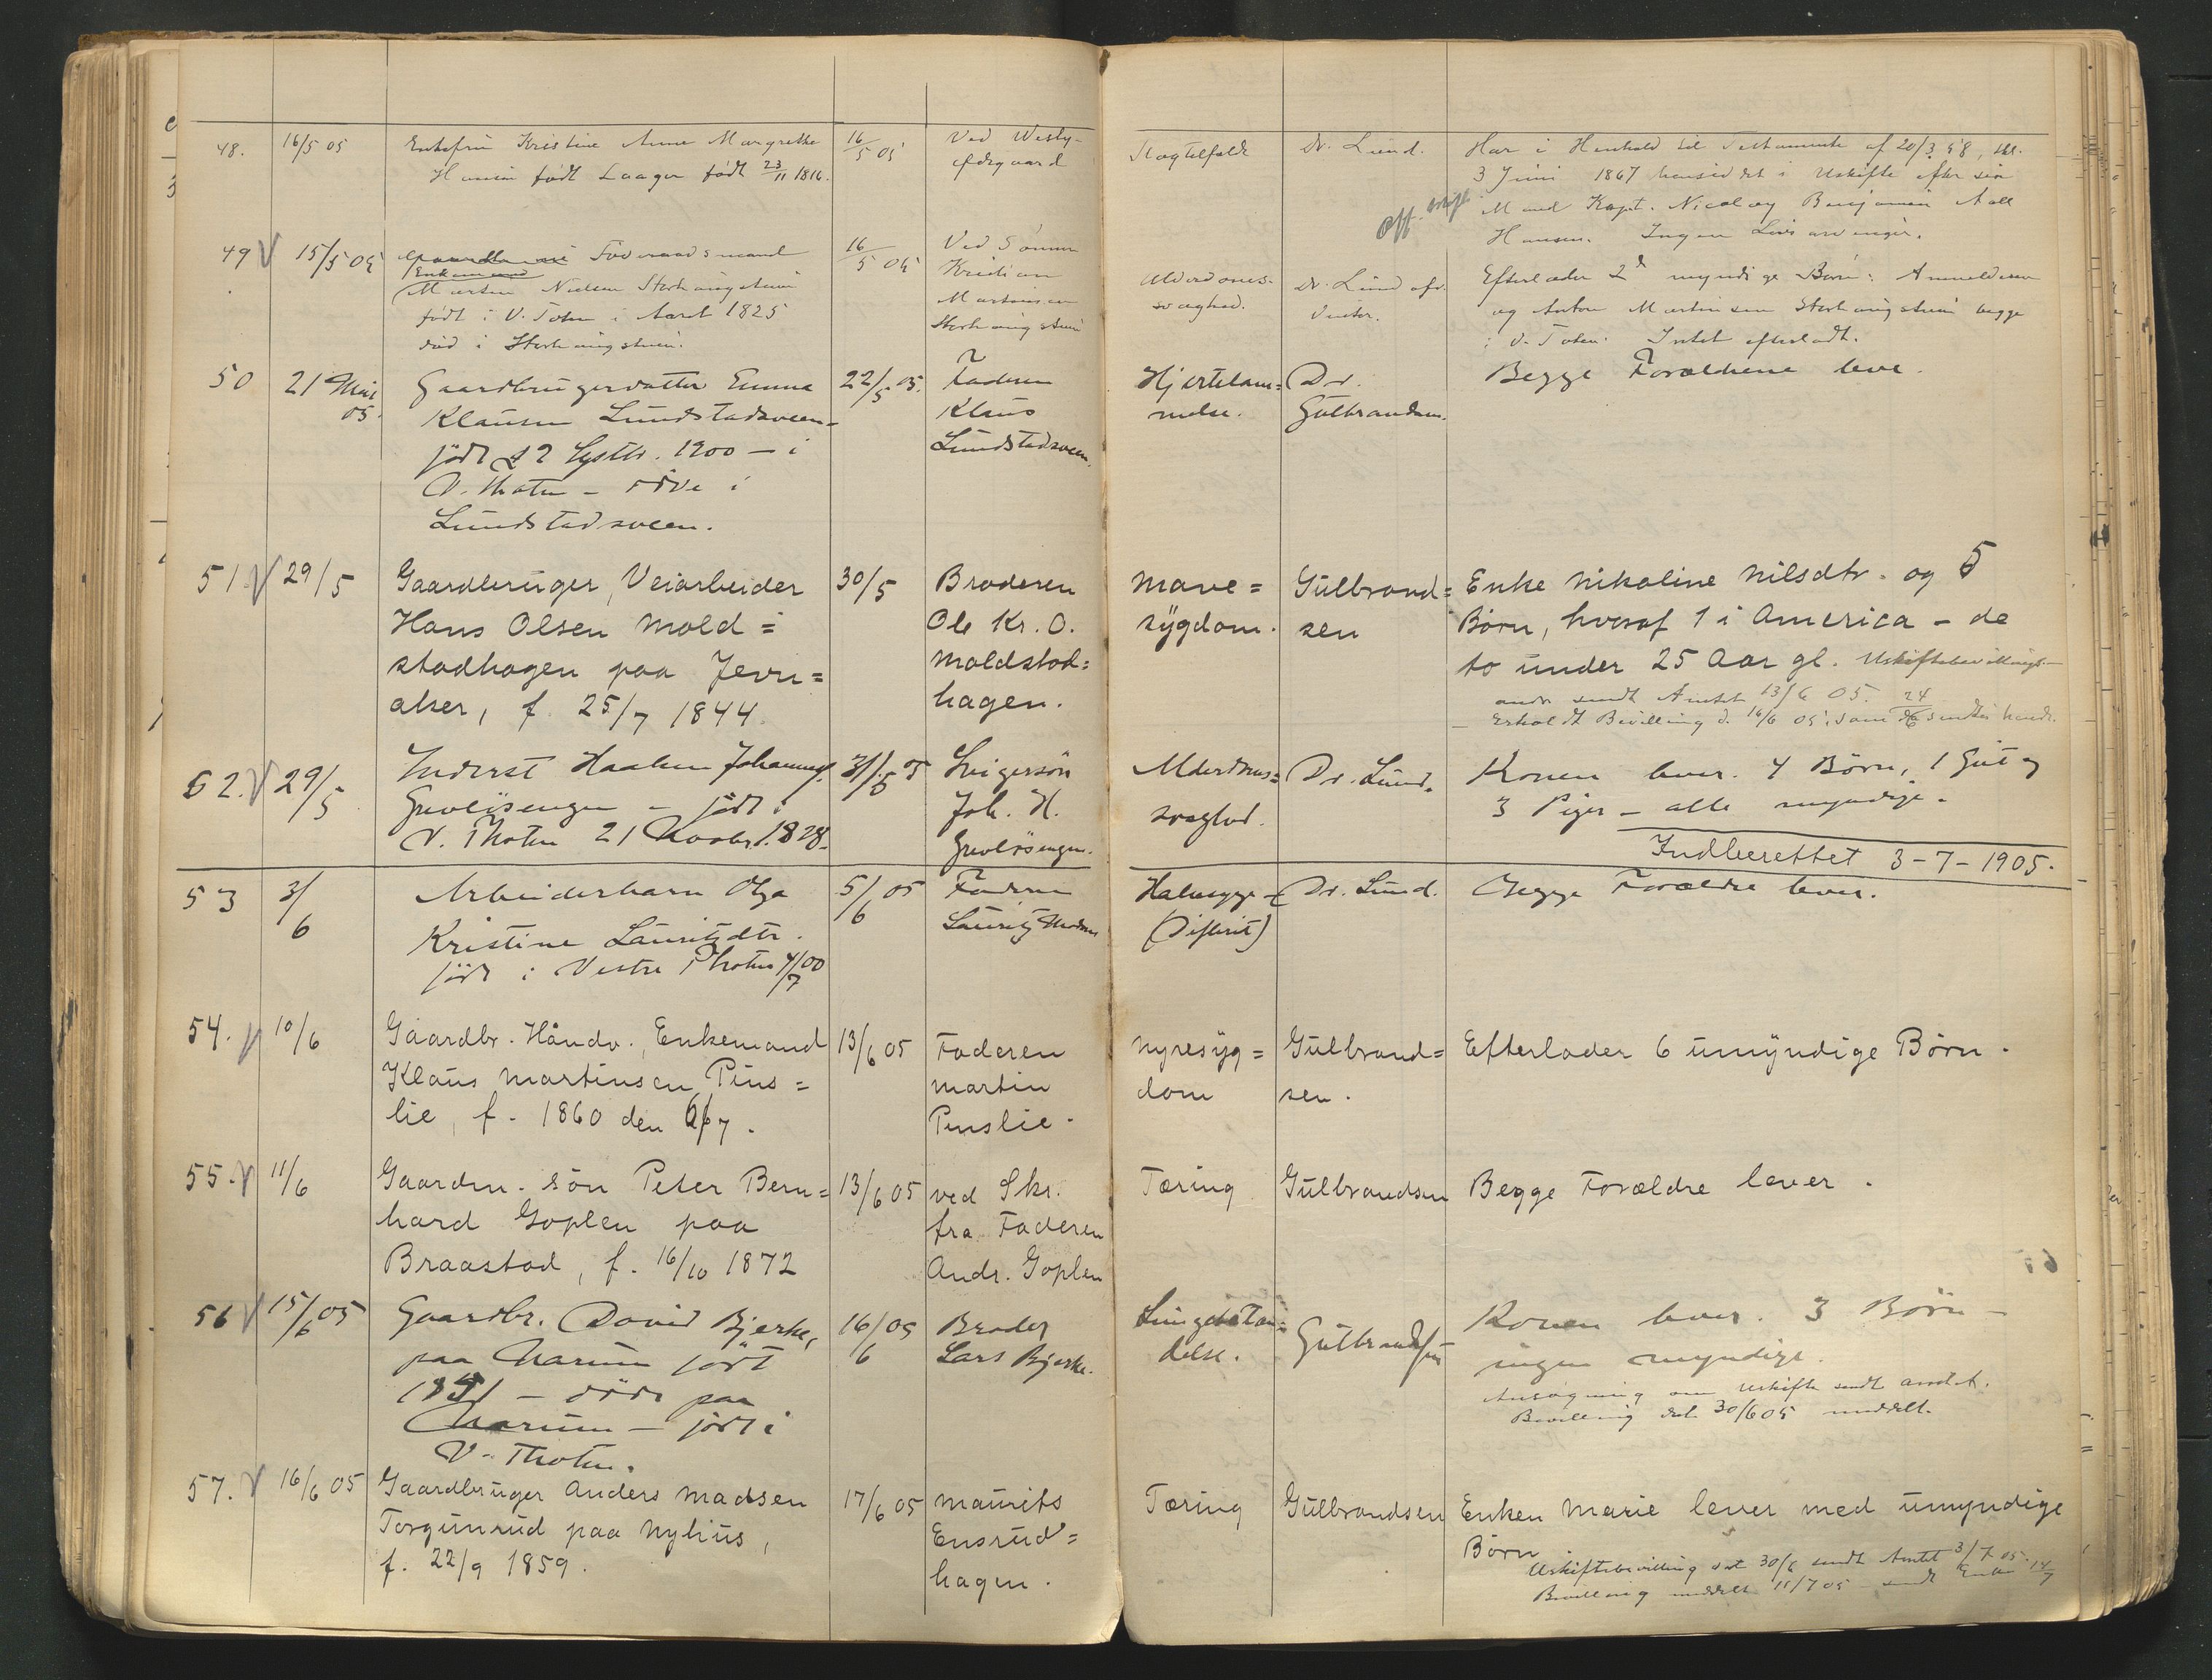 48. 16/5 05 Enkefru Kristine Anne Margrethe 16/5 05 Ved Westby- Slagtilfælde Dr. Lund. Har i Henhold til Testamente af 20/3 58,
Hansen født Laager født 23/11 1816. 3 Juni 1867 hensiddet i Uskifte efter sin
Mand Kapt. Nicolay Benjamin Aall
Off. skifte
Hansen. Ingen Livsarvinger.
49 V 15/5 05 Føderaadsmand 16/5 05 Ved Sønnen Alderdoms- Dr. Lund Efterlader 2 myndige Børn: Anmelderen
Enkemand Kristian svaghed. og Anton Martinsen begge
Marten Nielsen Martinsen i V. Toten. Intet efterladt.
født i V. Toten i Aaret 1825
død i
50 21 Mai 05. Gaardbrugerdatter Emma 22/5 05. Faderen Hjertelam= Dr. Begge Forældrene lever.
Klausen Lundstadsveen- Klaus melse. Gulbrandsen.
født 12 Septbr. 1900 – i Lundstadsveen.
V. Thoten – døde i
Lundstadsveen.
51. V 29/5 Gaardbruger, Veiarbeider 30/5 Broderen Mave= Gulbrand= Enke Nikoline Nilsdtr. og 5
Hans Olsen Mold= Ole Kr. O. sygdom. sen Børn, hvoraf 1 i America – de
stadhagen paa Jevn= Moldstad= to under 25 Aar gl. Uskiftebevillings-
aker, f. 25/7 1844. hagen. andr. sendt Amtet 13/6 05.
– Erholdt Bevilling d. 16/6 05, som 24/6 sendtes hende.
52. V 29/5 Inderst Haaken Johannes. 31/5 05 Svigersøn Alderdoms= Dr. Lund. Konen lever. 4 Børn, 1 Gut og
Grevløsengen – født i Joh. H. svaghed. 3 Piger – alle myndige.
V. Thoten 21 Novbr. 1828. Grevløsengen.
Indberettet 3-7-1905.
53 3/6 Arbeiderbarn Olga 5/6 05 Faderen Halssyge Dr. Lund. Begge Forældre lever.
Kristine Lauritzdtr. Lauritz (Difterit)
født i Vestre Thoten 4/7 00
54. V 10/6 Gaardbr. Håndv., Enkemand 13/6 05 Faderen Nyresyg= Gulbrand= Efterlader 6 umyndige Børn.
Klaus Martinsen Pins= Martin dom sen.
lie, f. 1860 den 6/7. Pinslie.
55. V 11/6 Gaardm. søn Peter Bern= 13/6 05 ved Skr. Tæring Gulbrandsen Begge Forældre lever.
hard Goplen paa fra Faderen
Braastad, f. 16/10 1872 Andr. Goplen
56 V 15/6 05 Gaardbr. David Bjerke, 16/6 05 Broder Lungebetæn= Gulbrandsen Konen lever. 3 Børn –
paa Narum født Lars Bjerke. delse. ingen myndige.
1851 – døde paa Ansøgning om Uskifte sendt Amtet.
Narum – født i Bevilling dat. 30/6 05 meddelt.
V. Thoten.
57. V 16/6 05 Gaardbruger Anders Madsen 17/6 05 Maurits Tæring Gulbrandsen Enken Marie lever med umyndige
Torgunrud paa Nyhus, Ensrud= Børn.
f. 22/9 1859. hagen. Uskiftebevilling dat 30/6 sendt Amtet 3/7 05.
Bevilling meddelt 11/7 05 – sendt Enken 14/7